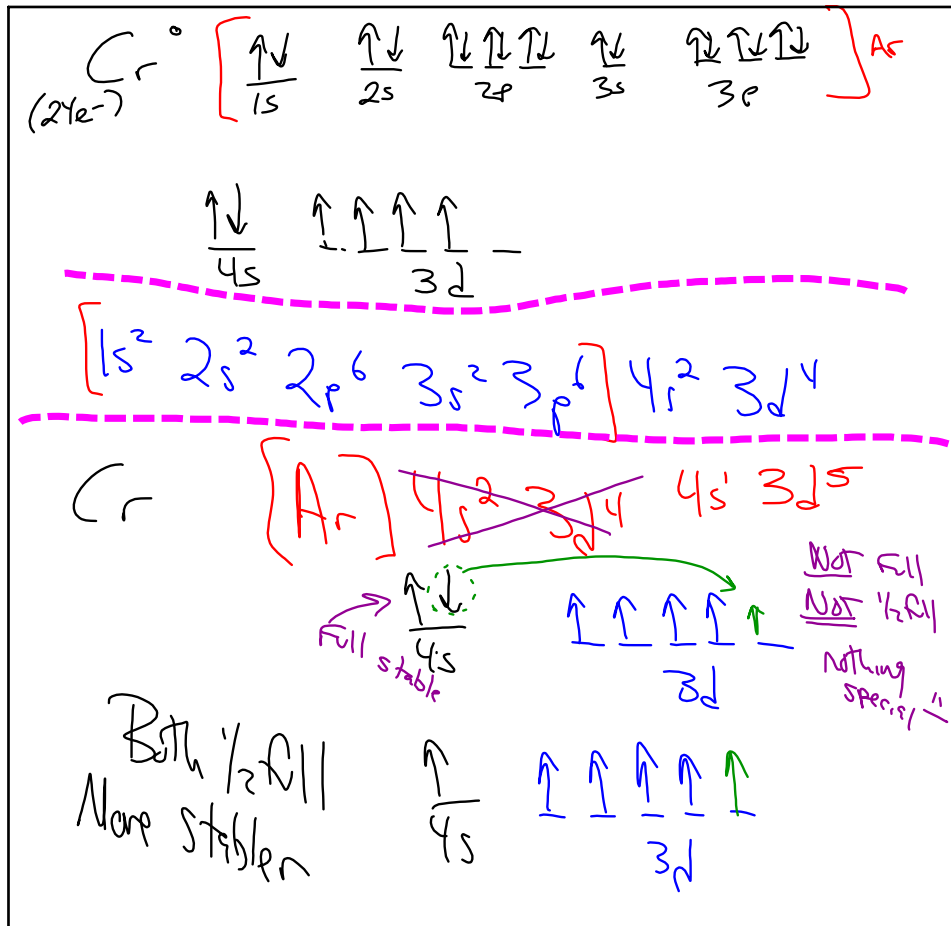 Cr° [ ↑↓ ↑↓ ↑↓ ↑↓ ↑↓ ↑↓ ↑↓ ↑↓ ↑↓ ] Ar
(24e-) 1s 2s 2p 3s 3p
↑↓ ↑ ↑ ↑ ↑
4s 3d
[1s² 2s² 2p⁶ 3s² 3p⁶] 4s² 3d⁴
Cr [Ar] 4s² 3d⁴ 4s¹ 3d⁵
↑↓ ↑ ↑ ↑ ↑ ↑
4s 3d
Full stable
Not Full
Not ½ full
nothing
special
Both ½ full
More stabler
↑ ↑ ↑ ↑ ↑ ↑
4s 3d